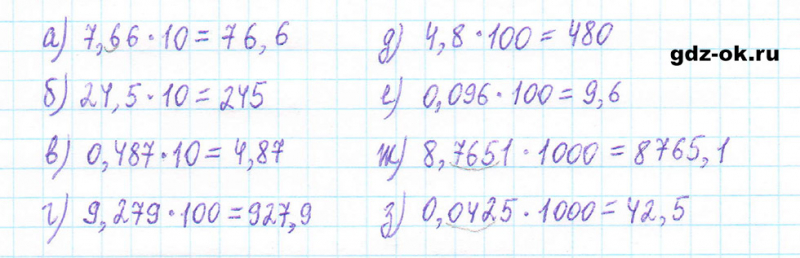 а) 7,66 · 10 = 76,6
б) 24,5 · 10 = 245
в) 0,487 · 10 = 4,87
г) 9,279 · 100 = 927,9
д) 4,8 · 100 = 480
е) 0,096 · 100 = 9,6
ж) 8,7651 · 1000 = 8765,1
з) 0,0425 · 1000 = 42,5
gdz-ok.ru